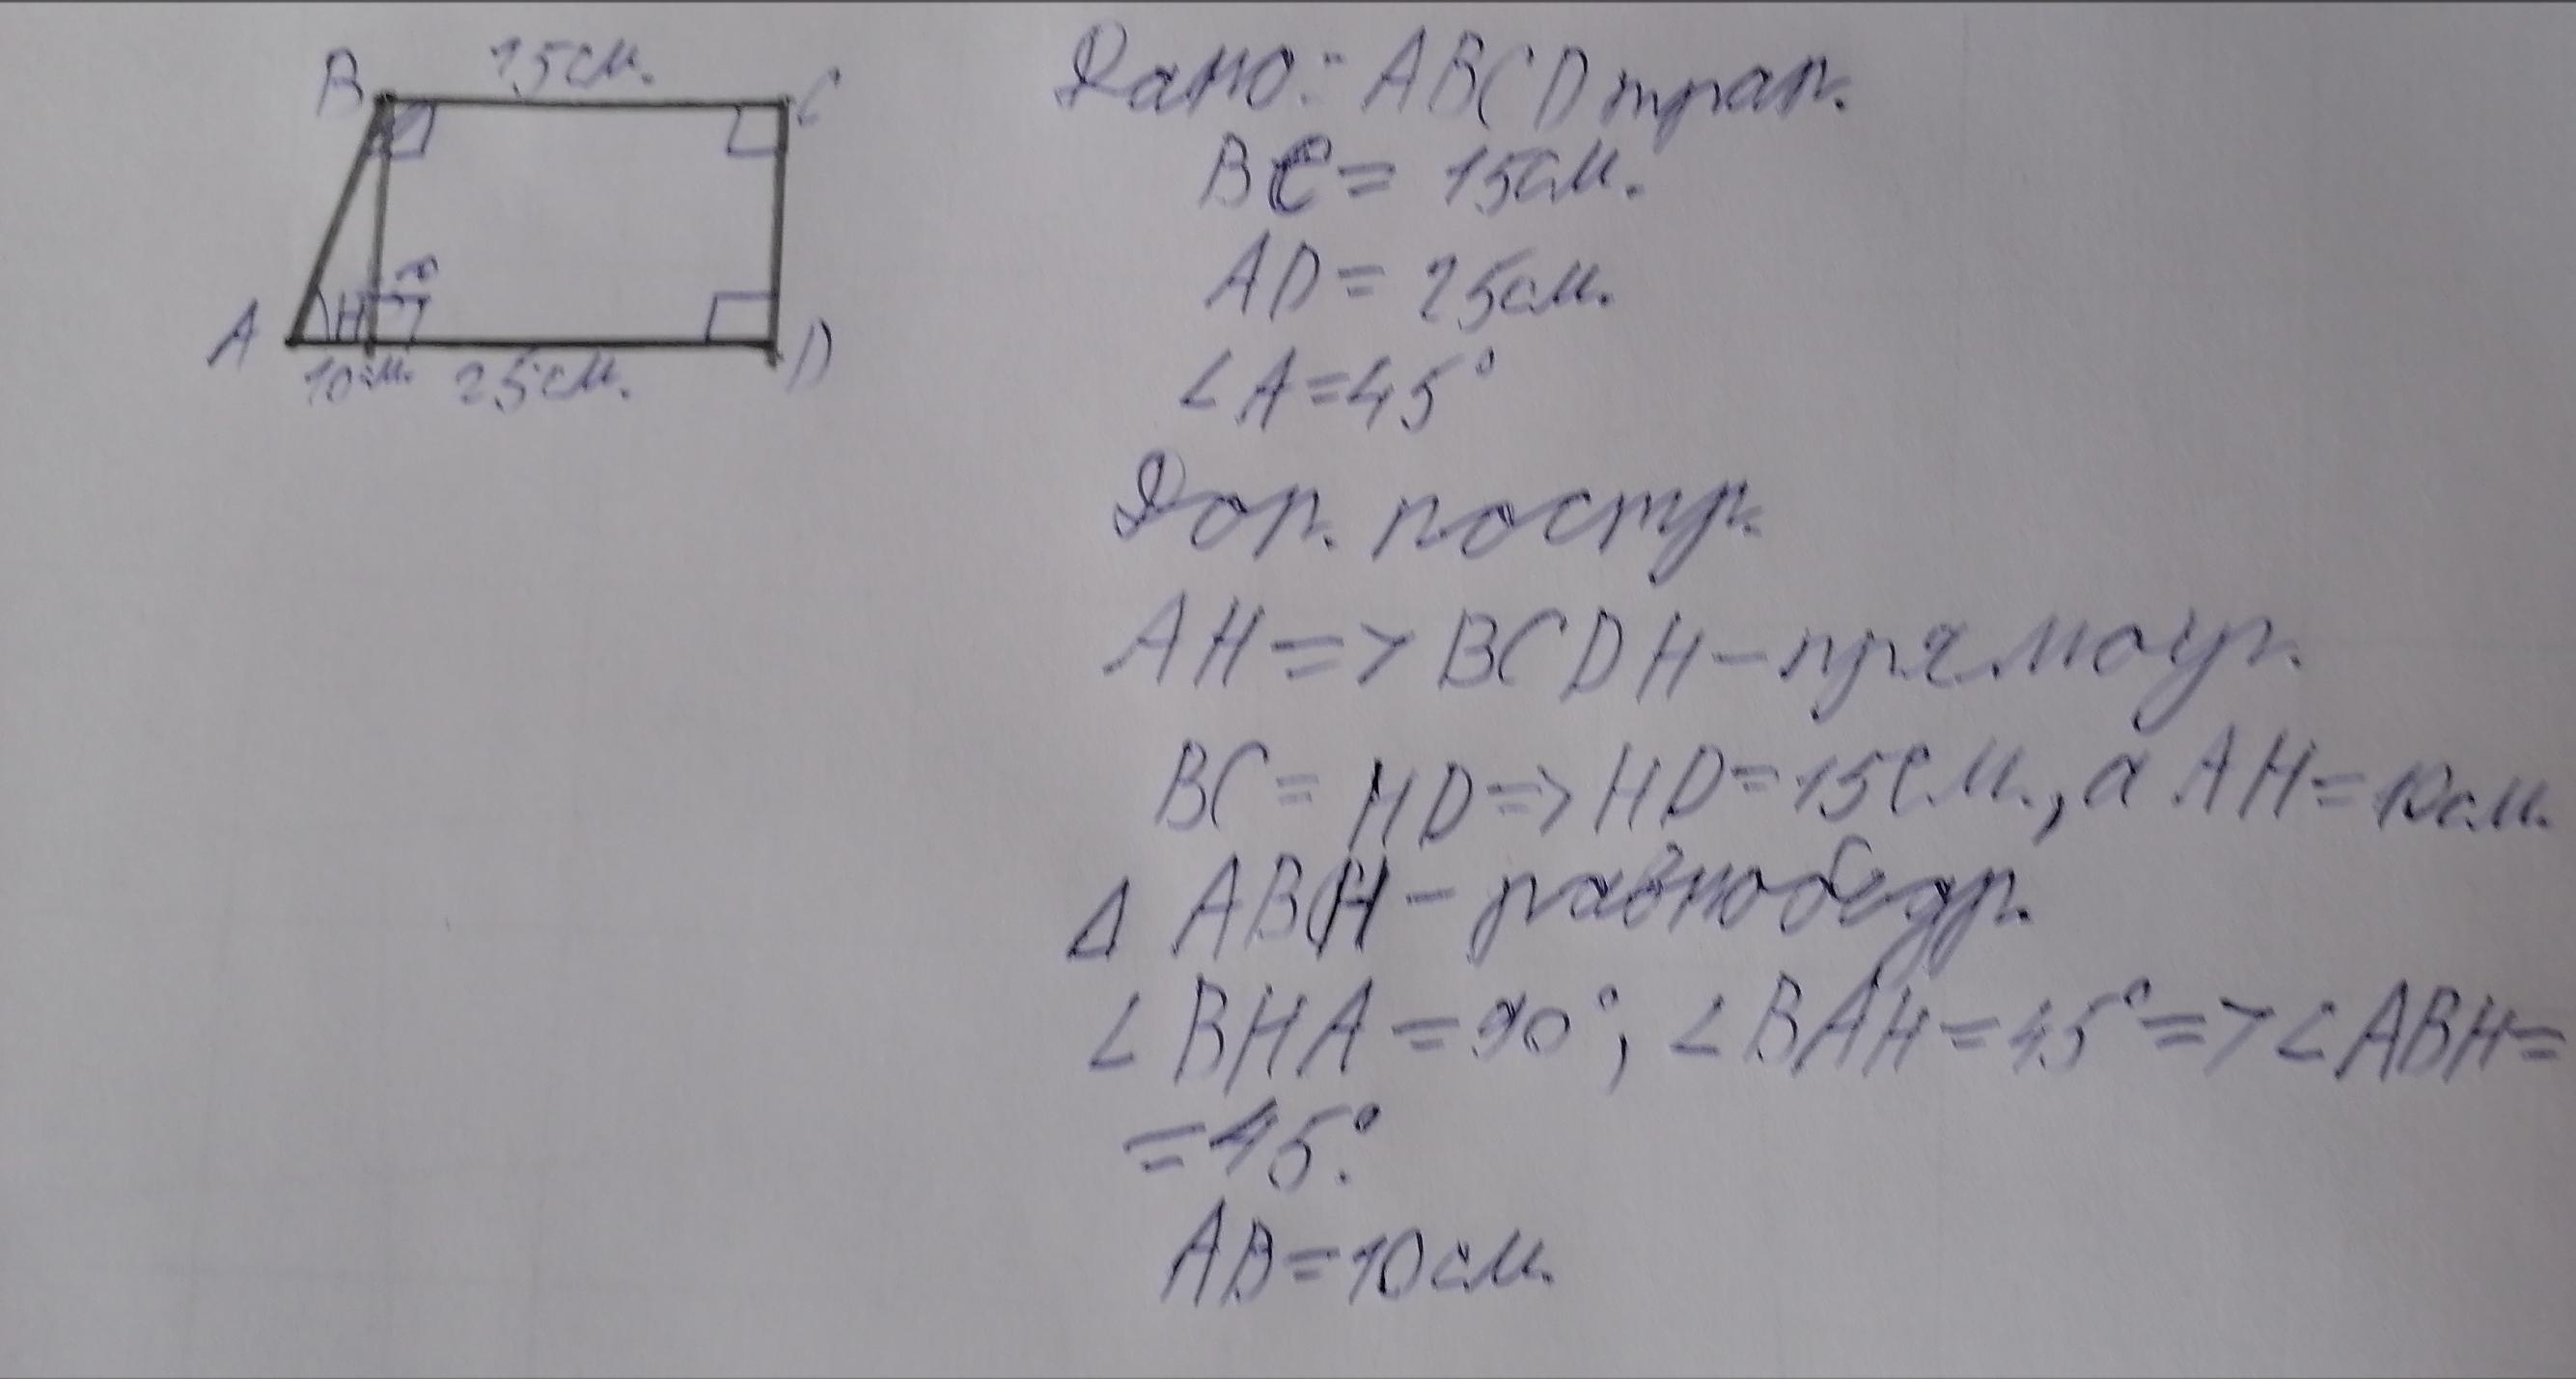 B 15см. C
A H D
10см. 25см.
Дано: ABCD трап.
BC = 15см.
AD = 25см.
∠A = 45°
Доп. постр.
AH => BCDH – прямоуг.
BC = HD => HD = 15см., а AH = 10см.
Δ ABH – равнобедр.
∠BHA = 90°; ∠BAH = 45° => ∠ABH =
= 45°.
AB = 10см.